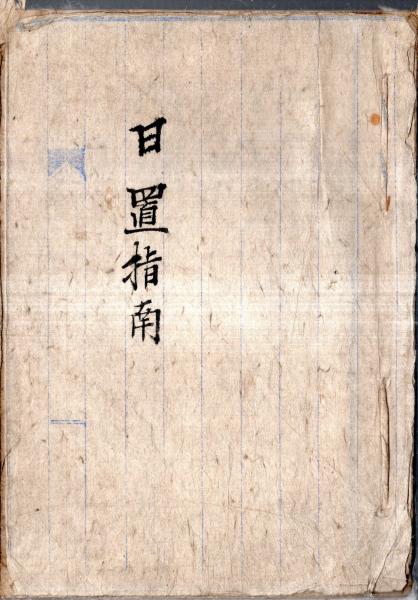 日置指南